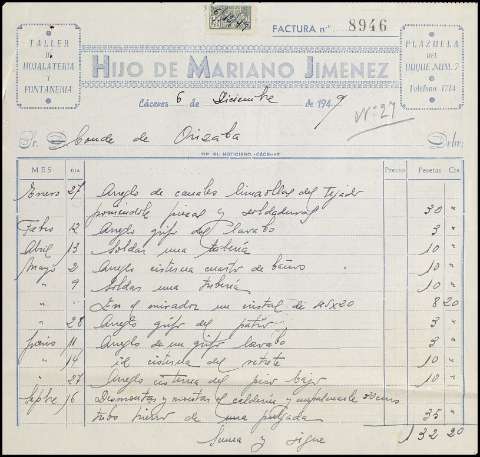 FACTURA nº 8946
TALLER
DE
HOJALATERIA
Y
FONTANERIA
HIJO DE MARIANO JIMENEZ
PLAZUELA
DEL
DUQUE, NUM. 7
Teléfono 1714
Cáceres 6 de Diciembre de 1949
Nº 27
Sr. Conde de Orizaba Debe:
TIP. EL NOTICIERO.-CÁCERES
MES DIA Precio Pesetas Cts
Enero 27 Arreglo de canales del tejado
poniendole piezas y soldaduras 30 "
Febro 12 Arreglo grifo del lavabo 3 "
Abril 13 Soldar una tubería 10 "
Mayo 2 Arreglo cisterna cuarto de baño 10 "
" 9 Soldar una tubería 10 "
" En el mirador un cristal de 45x20 8 20
" 28 Arreglo grifo del patio 3 "
Junio 11 Arreglo de un grifo lavabo 3 "
" 14 id cisterna del retrete 10 "
" 27 Arreglo cisterna del piso bajo 10 "
Sepbre 16 Desmontar y montar el calderin y
tubo hierro de una pulgada 35 "
Suma y sigue 132 20